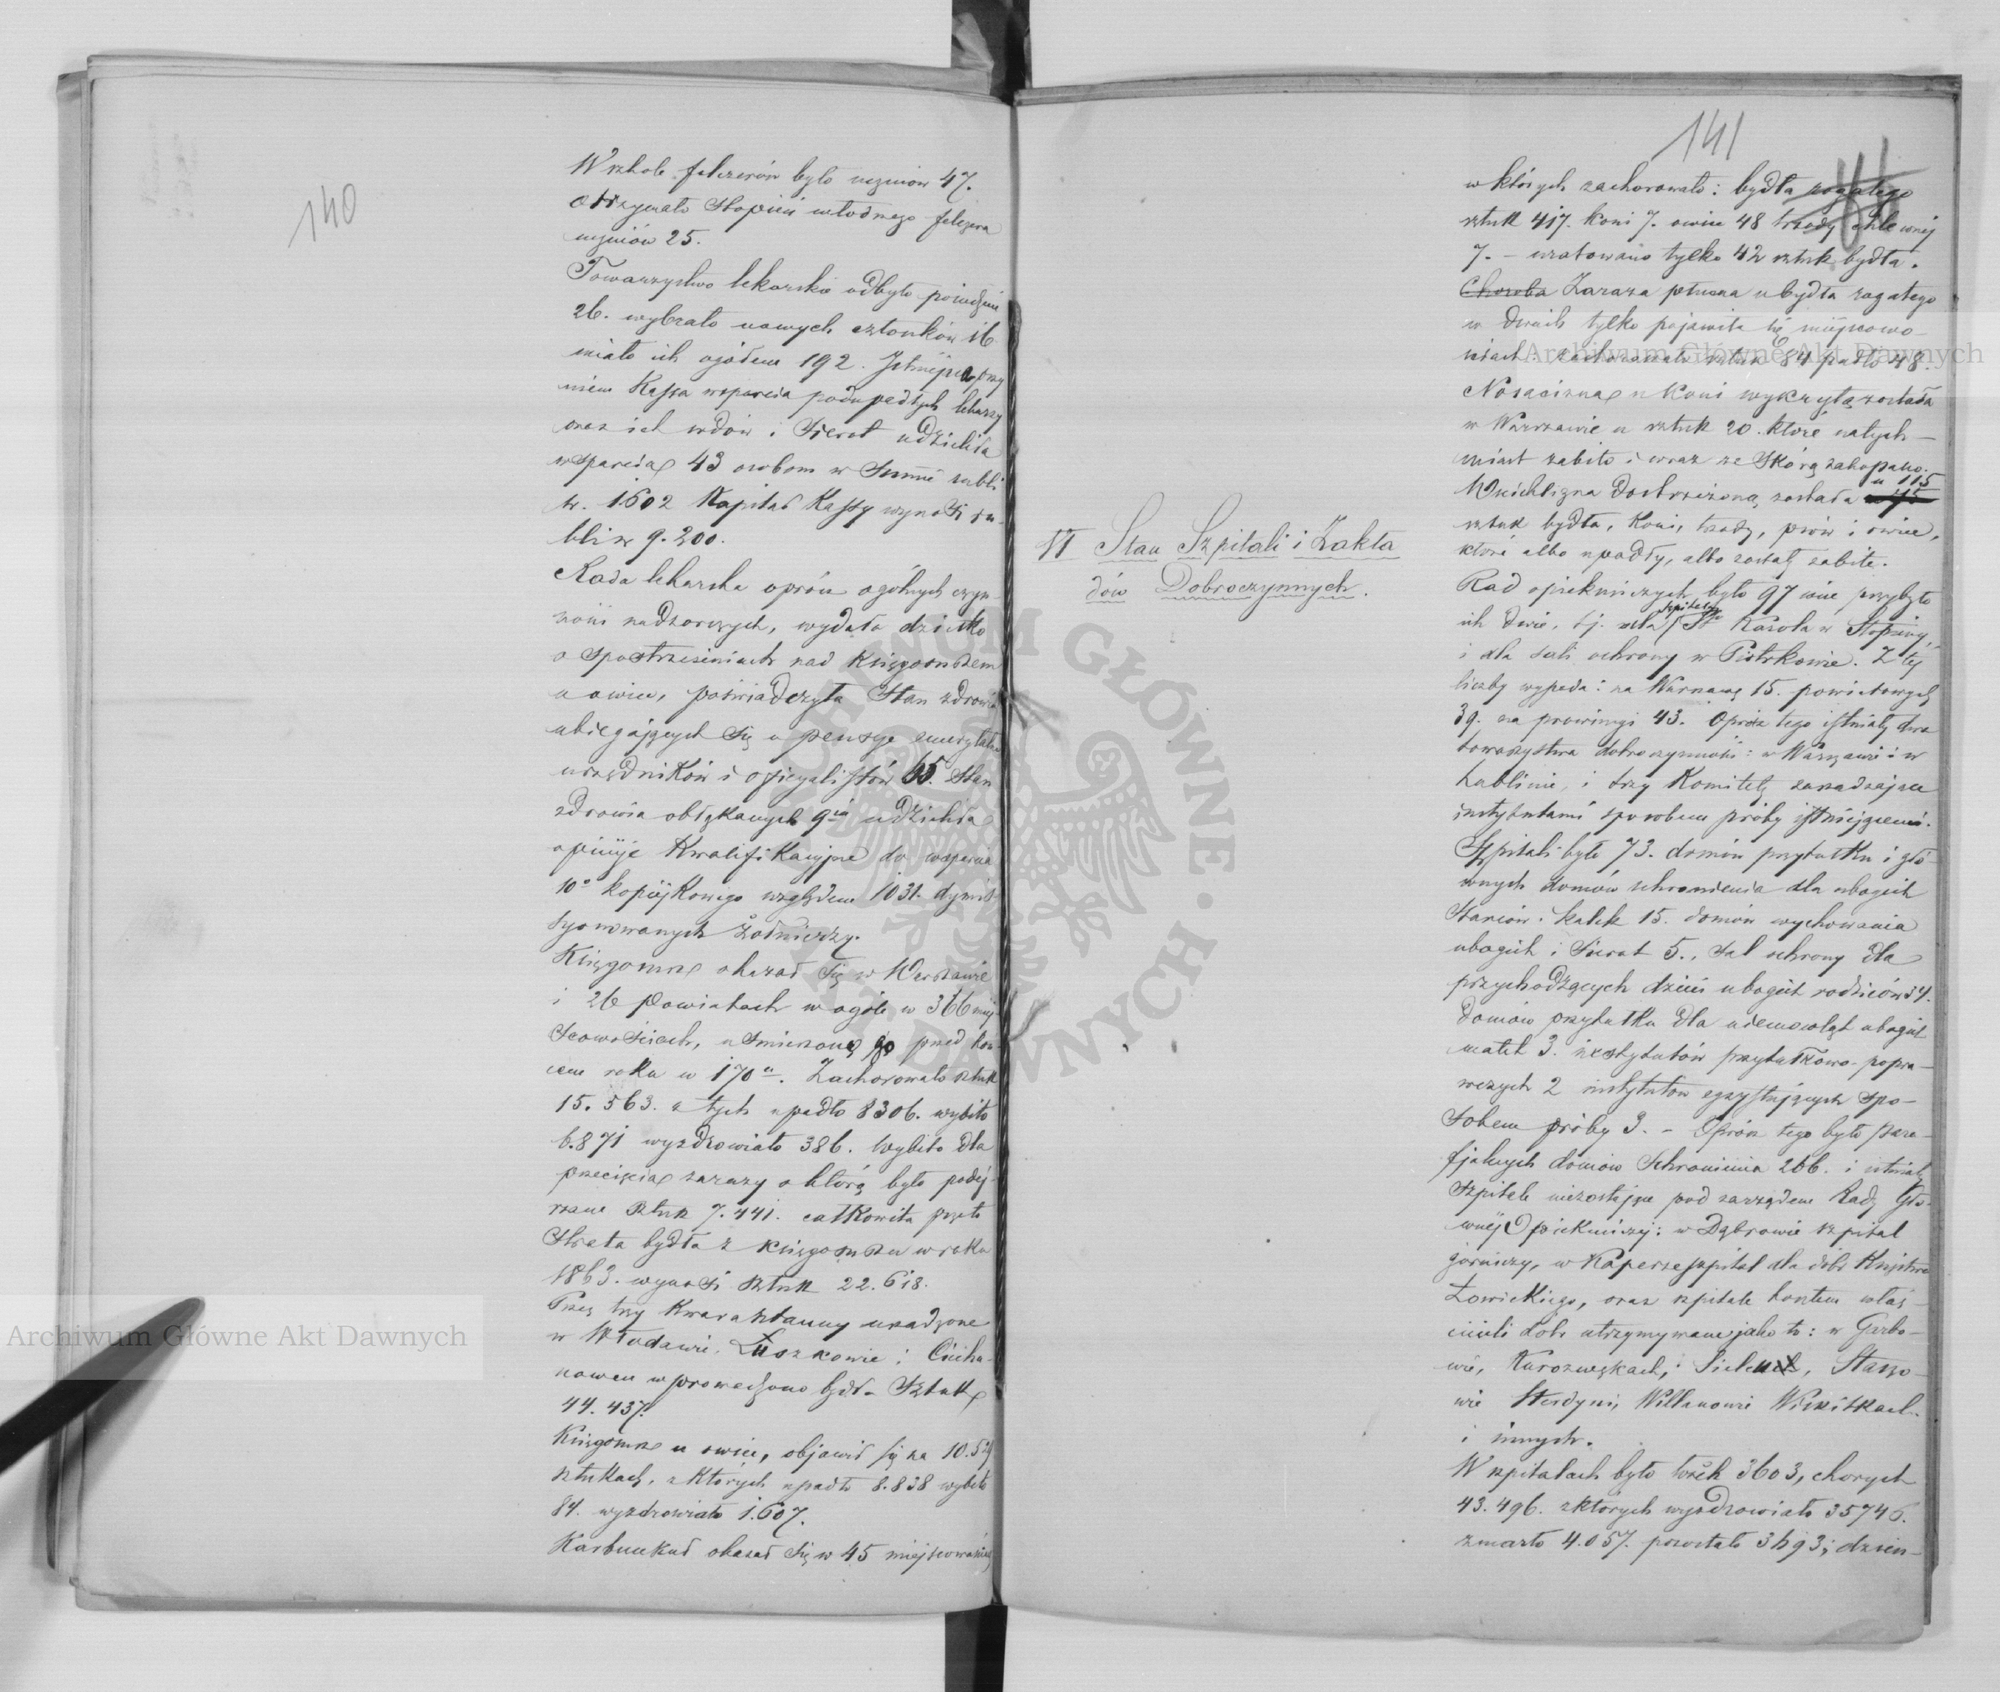 140
W szkole felczerów było uczniów 47.
otrzymało stopień młodszego felczera
uczniów 25.
Towarzystwo lekarskie odbyło posiedzeń
26. wybrało nowych członków 16
miało ich ogółem 192. Istniejąca przy
niem Kassa wsparcia podupadłych lekarzy
oraz ich wdów i Sierot udzieliła
wsparcia 43 osobom w Summie rubli
sr. 1.602 Kapitał Kassy wynosi ru-
bli sr 9.200.
Rada lekarska oprócz ogólnych czyn-
ności nadzorczych, wydała dziełko
o spostrzeżeniach nad Księgosuszem
u owiec, poświadczyła Stan zdrowia
ubiegających się o pensye emerytalne
urzędników i oficyalistów 65. Stan
zdrowia obłąkanych 9iu udzieliła
opinije Kwalifikacyjne do wsparcia
10o kopiejkowego względem 1031. dymis-
syonowanych żołnierzy.
Księgosusz okazał się w Warszawie
i 26 powiatach w ogóle w 366 miej-
scowościach, uśmierzono go przed koń-
cem roku w 170u. Zachorowało sztuk
15.563. z tych upadło 8306. wybito
6.871 wyzdrowiało 386. Wybito dla
przecięcia zarazy o którą było podej-
rzane sztuk 7.441. całkowita przeto
Strata bydła z księgosuszu w roku
1863. wynosi sztuk 22.618.
Przez trzy Kwarantanny urządzone
w Włodawie, Łuszkowie i Ciecha-
nowcu wprowadzono bydła Sztuk
44.437.
Księgosusz u owiec, objawił się na 10.529
sztukach, z których upadło 8.838 wybito
84. wyzdrowiało 1.607.
Karbunkuł okazał się w 45 miejscowościach
141
w których zachorowało: bydła rogatego
sztuk 417. koni 7. owiec 48 trzody chlewnej
7. – uratowano tylko 42 sztuk bydła.
Choroba Zaraza płucna u bydła rogatego
w dwóch tylko pojawiła się miejscowo-
ściach zachorowało sztuk 84 padło 48.
Nosacizna u koni wykrytą została
w Warszawie u sztuk 20. które natych-
miast zabito i wraz ze skórą zakopano.
Wścieklizna dostrzeżoną została u 115
sztuk bydła, koni, trzody, psów i owiec,
które albo upadły, albo zostały zabite.
VI Stan Szpitali i Zakła
dów Dobroczynnych.
Rad opiekuńczych było 97 więc przybyło
ich dwie, t.j. dla szpitala Sgo Karola w
i dla sali ochrony w Piotrkowie. Z tej
liczby wypada: na Warszawę 15. powiatowych
39. na prowincyi 43. Oprócz tego istniały dwa
towarzystwa dobroczynności: w Warszawie i w
Lublinie, i trzy Komitety zarządzające
instytutami sposobem próby istniejącemi.
Szpitali było 73. domów przytułku i głó-
wnych domów schronienia dla ubogich
Starców i kalek 15. domów wychowania
ubogich i Sierot 5., Sal ochrony dla
przychodzących dzieci ubogich rodziców 34.
Domów przytułku dla niemowląt ubogich
matek 3. instytutów przytułkowo-popra-
wczych 2 instytutów egzystujących spo-
sobem próby 3. – Oprócz tego było para-
fjalnych domów Schronienia 266. i istniały
Szpitale niezostające pod zarządem Rady Głó-
wnej Opiekuńczej: w Dąbrowie szpital
górniczy, w szpital dla dóbr Księstwa
Łowickiego, oraz szpitale kosztem właś-
cicieli dóbr utrzymywane jako to: w Garbo-
wie, Kurozwękach, Staszo-
wie Sterdyni, Willanowie Wiskitkach
i innych.
W szpitalach było łóżek 3603, chorych
43.496. z których wyzdrowiało 35746.
zmarło 4.057. pozostało 3693; dzien-
Archiwum Główne Akt Dawnych
Archiwum Główne Akt Dawnych
ARCHIWUM GŁÓWNE AKT DAWNYCH